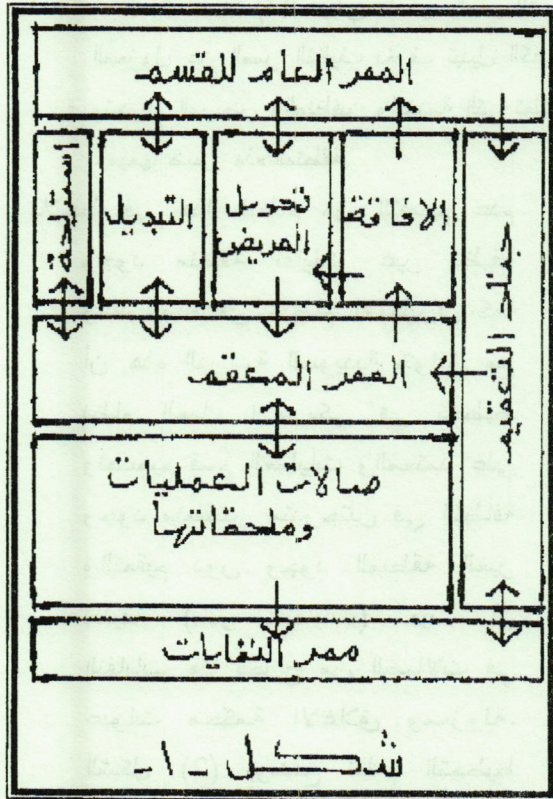 الممر العام للقسم
استراحة
التبديل
تحويل
المريض
الافاقة
خلية التعقيم
الممر المعقم
صالات العمليات
وملحقاتها
ممر النفايات
شكل - ١ -